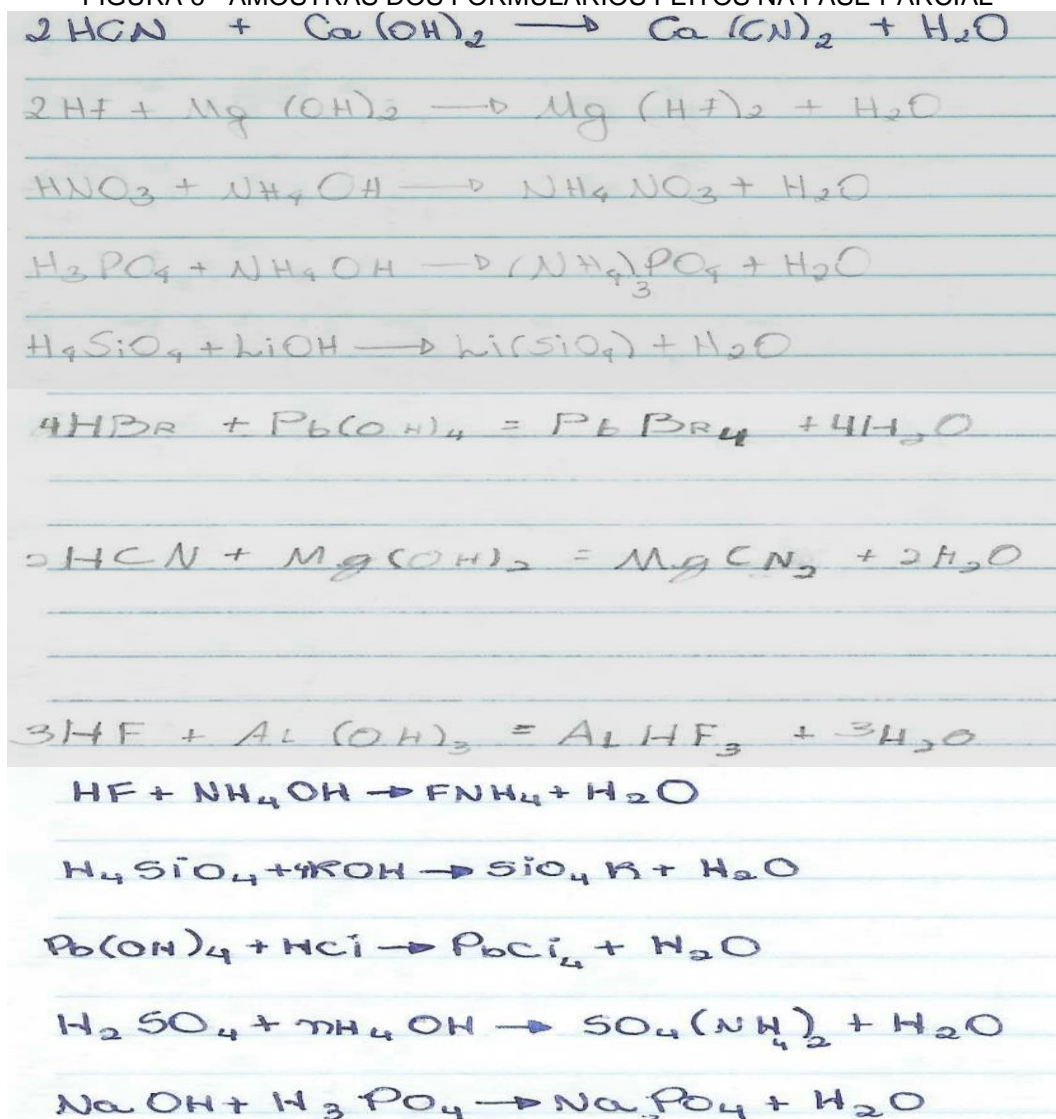 FIGURA 6 - AMOSTRAS DOS FORMULÁRIOS FEITOS NA FASE PARCIAL
2 HCN + Ca (OH)₂ → Ca (CN)₂ + H₂O
2 Hf + Mg (OH)₂ → Mg (Hf)₂ + H₂O
HNO₃ + NH₄OH → NH₄NO₃ + H₂O
H₃PO₄ + NH₄OH → (NH₄)₃PO₄ + H₂O
H₄SiO₄ + LiOH → Li(SiO₄) + H₂O
4HBR + Pb(OH)₄ = PbBR₄ + 4H₂O
2HCN + Mg(OH)₂ = MgCN₂ + 2H₂O
3HF + AL (OH)₃ = ALHF₃ + 3H₂O
HF + NH₄OH → FNH₄ + H₂O
H₄SiO₄ + 4KOH → SiO₄K + H₂O
Pb(OH)₄ + HCi → PbCi₄ + H₂O
H₂SO₄ + nH₄OH → SO₄(NH₄)₂ + H₂O
NaOH + H₃PO₄ → Na₃PO₄ + H₂O